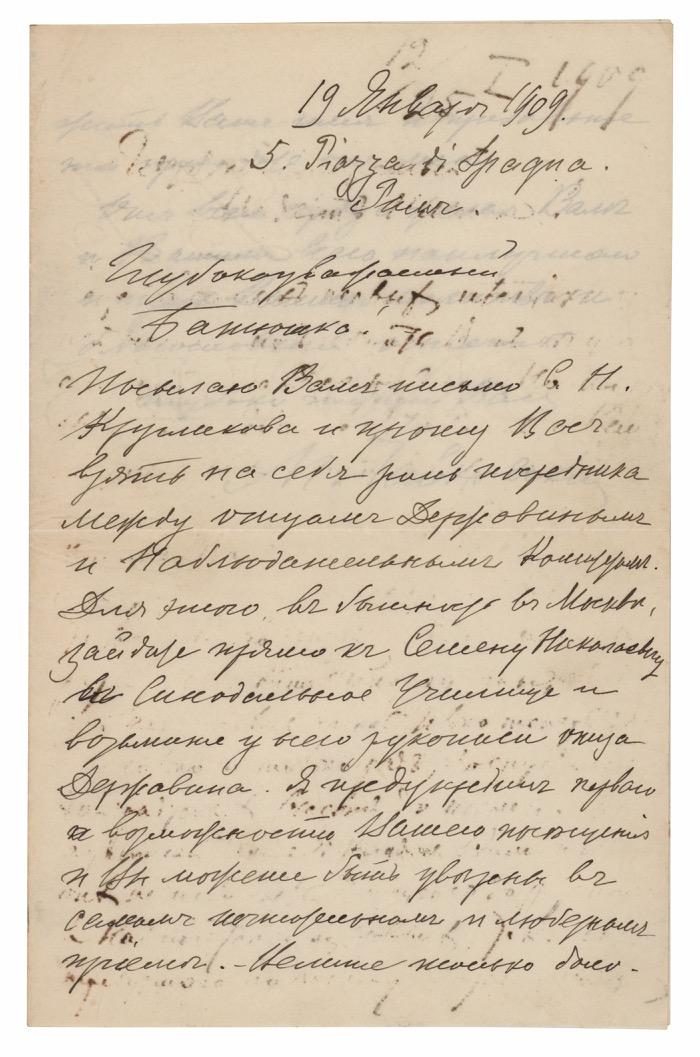 19 Января 1909.
5. Piazza di Spagna.
Римъ.
Глубокоуважаемый
Батюшка.
Посылаю Вамъ письмо С. Н.
Кругликова и прошу Васъ
взять на себя роль посредника
между отцомъ Державинымъ
и Наблюдательнымъ Комитетомъ.
Для этого, въ бытность въ Москвѣ,
зайдите прямо къ Семену Николаевичу
въ Синодальное Училище и
возьмите у него рукописи отца
Державина. Я предупредилъ
о возможности Вашего посѣщенія
и Вы можете быть увѣрены въ
самомъ почтительномъ и любезномъ
пріемѣ. – только